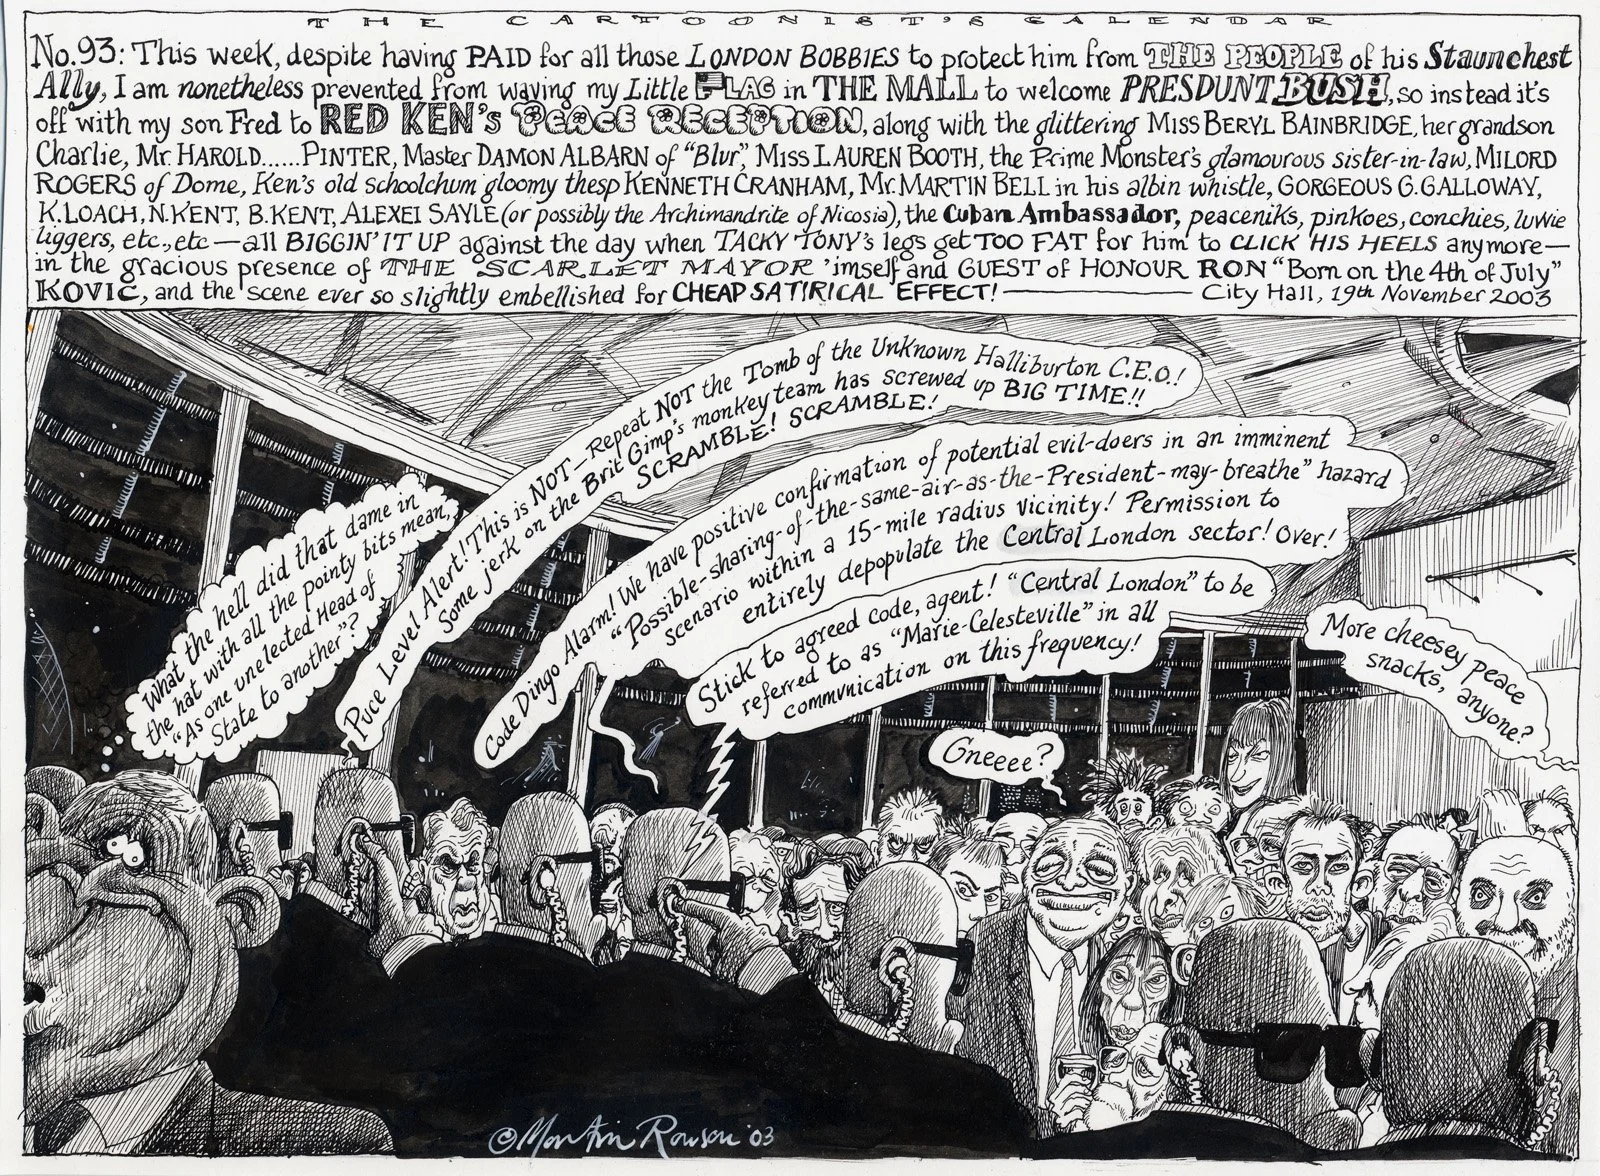 THE CARTOONIST'S CALENDAR
No.93: This week, despite having PAID for all those LONDON BOBBIES to protect him from THE PEOPLE of his Staunchest
Ally, I am nonetheless prevented from waving my Little FLAG in THE MALL to welcome PRESDUNT BUSH, so instead it's
off with my son Fred to RED KEN's PEACE RECEPTION, along with the glittering MISS BERYL BAINBRIDGE, her grandson
Charlie, Mr. HAROLD......PINTER, Master DAMON ALBARN of "Blur", MISS LAUREN BOOTH, the Prime Monster's glamourous sister-in-law, MILORD
ROGERS of Dome, Ken's old schoolchum gloomy thesp KENNETH CRANHAM, Mr. MARTIN BELL in his albin whistle, GORGEOUS G. GALLOWAY,
K. LOACH, N. KENT, B. KENT, ALEXEI SAYLE (or possibly the Archimandrite of Nicosia), the Cuban Ambassador, peaceniks, pinkoes, conchies, luvvie
liggers, etc., etc — all BIGGIN' IT UP against the day when TACKY TONY's legs get TOO FAT for him to CLICK HIS HEELS anymore —
in the gracious presence of THE SCARLET MAYOR 'imself and GUEST of HONOUR RON "Born on the 4th of July"
KOVIC, and the scene ever so slightly embellished for CHEAP SATIRICAL EFFECT! — City Hall, 19th November 2003
What the hell did that dame in
the hat with all the pointy bits mean,
"As one unelected Head of
State to another"?
Puce Level Alert! This is NOT – Repeat NOT the Tomb of the Unknown Halliburton C.E.O.!
Some jerk on the Brit Gimp's monkey team has screwed up BIG TIME!!
SCRAMBLE! SCRAMBLE!
Code Dingo Alarm! We have positive confirmation of potential evil-doers in an imminent
"Possible-sharing-of-the-same-air-as-the-President-may-breathe" hazard
scenario within a 15-mile radius vicinity! Permission to
entirely depopulate the Central London sector! Over!
Stick to agreed code, agent! "Central London" to be
referred to as "Marie-Celesteville" in all
communication on this frequency!
Gneeee?
More cheesey peace
snacks, anyone?
© Martin Rowson '03